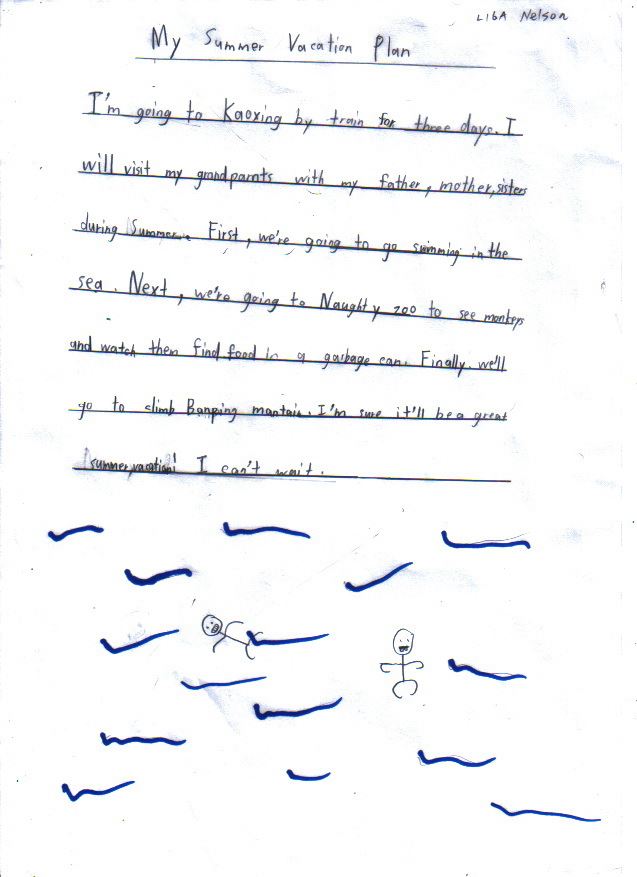 L16A Nelson
My Summer Vacation Plan
I'm going to Kaoxing by train for three days. I
will visit my grandparnts with my father, mother, sisters
during Summer. First, we're going to go swimming in the
sea. Next, we're going to Naughty zoo to see monkeys
and watch them find food in a garbage can. Finally. we'll
go to climb Banping mantain. I'm sure it'll be a great
summer vacation! I can't wait.